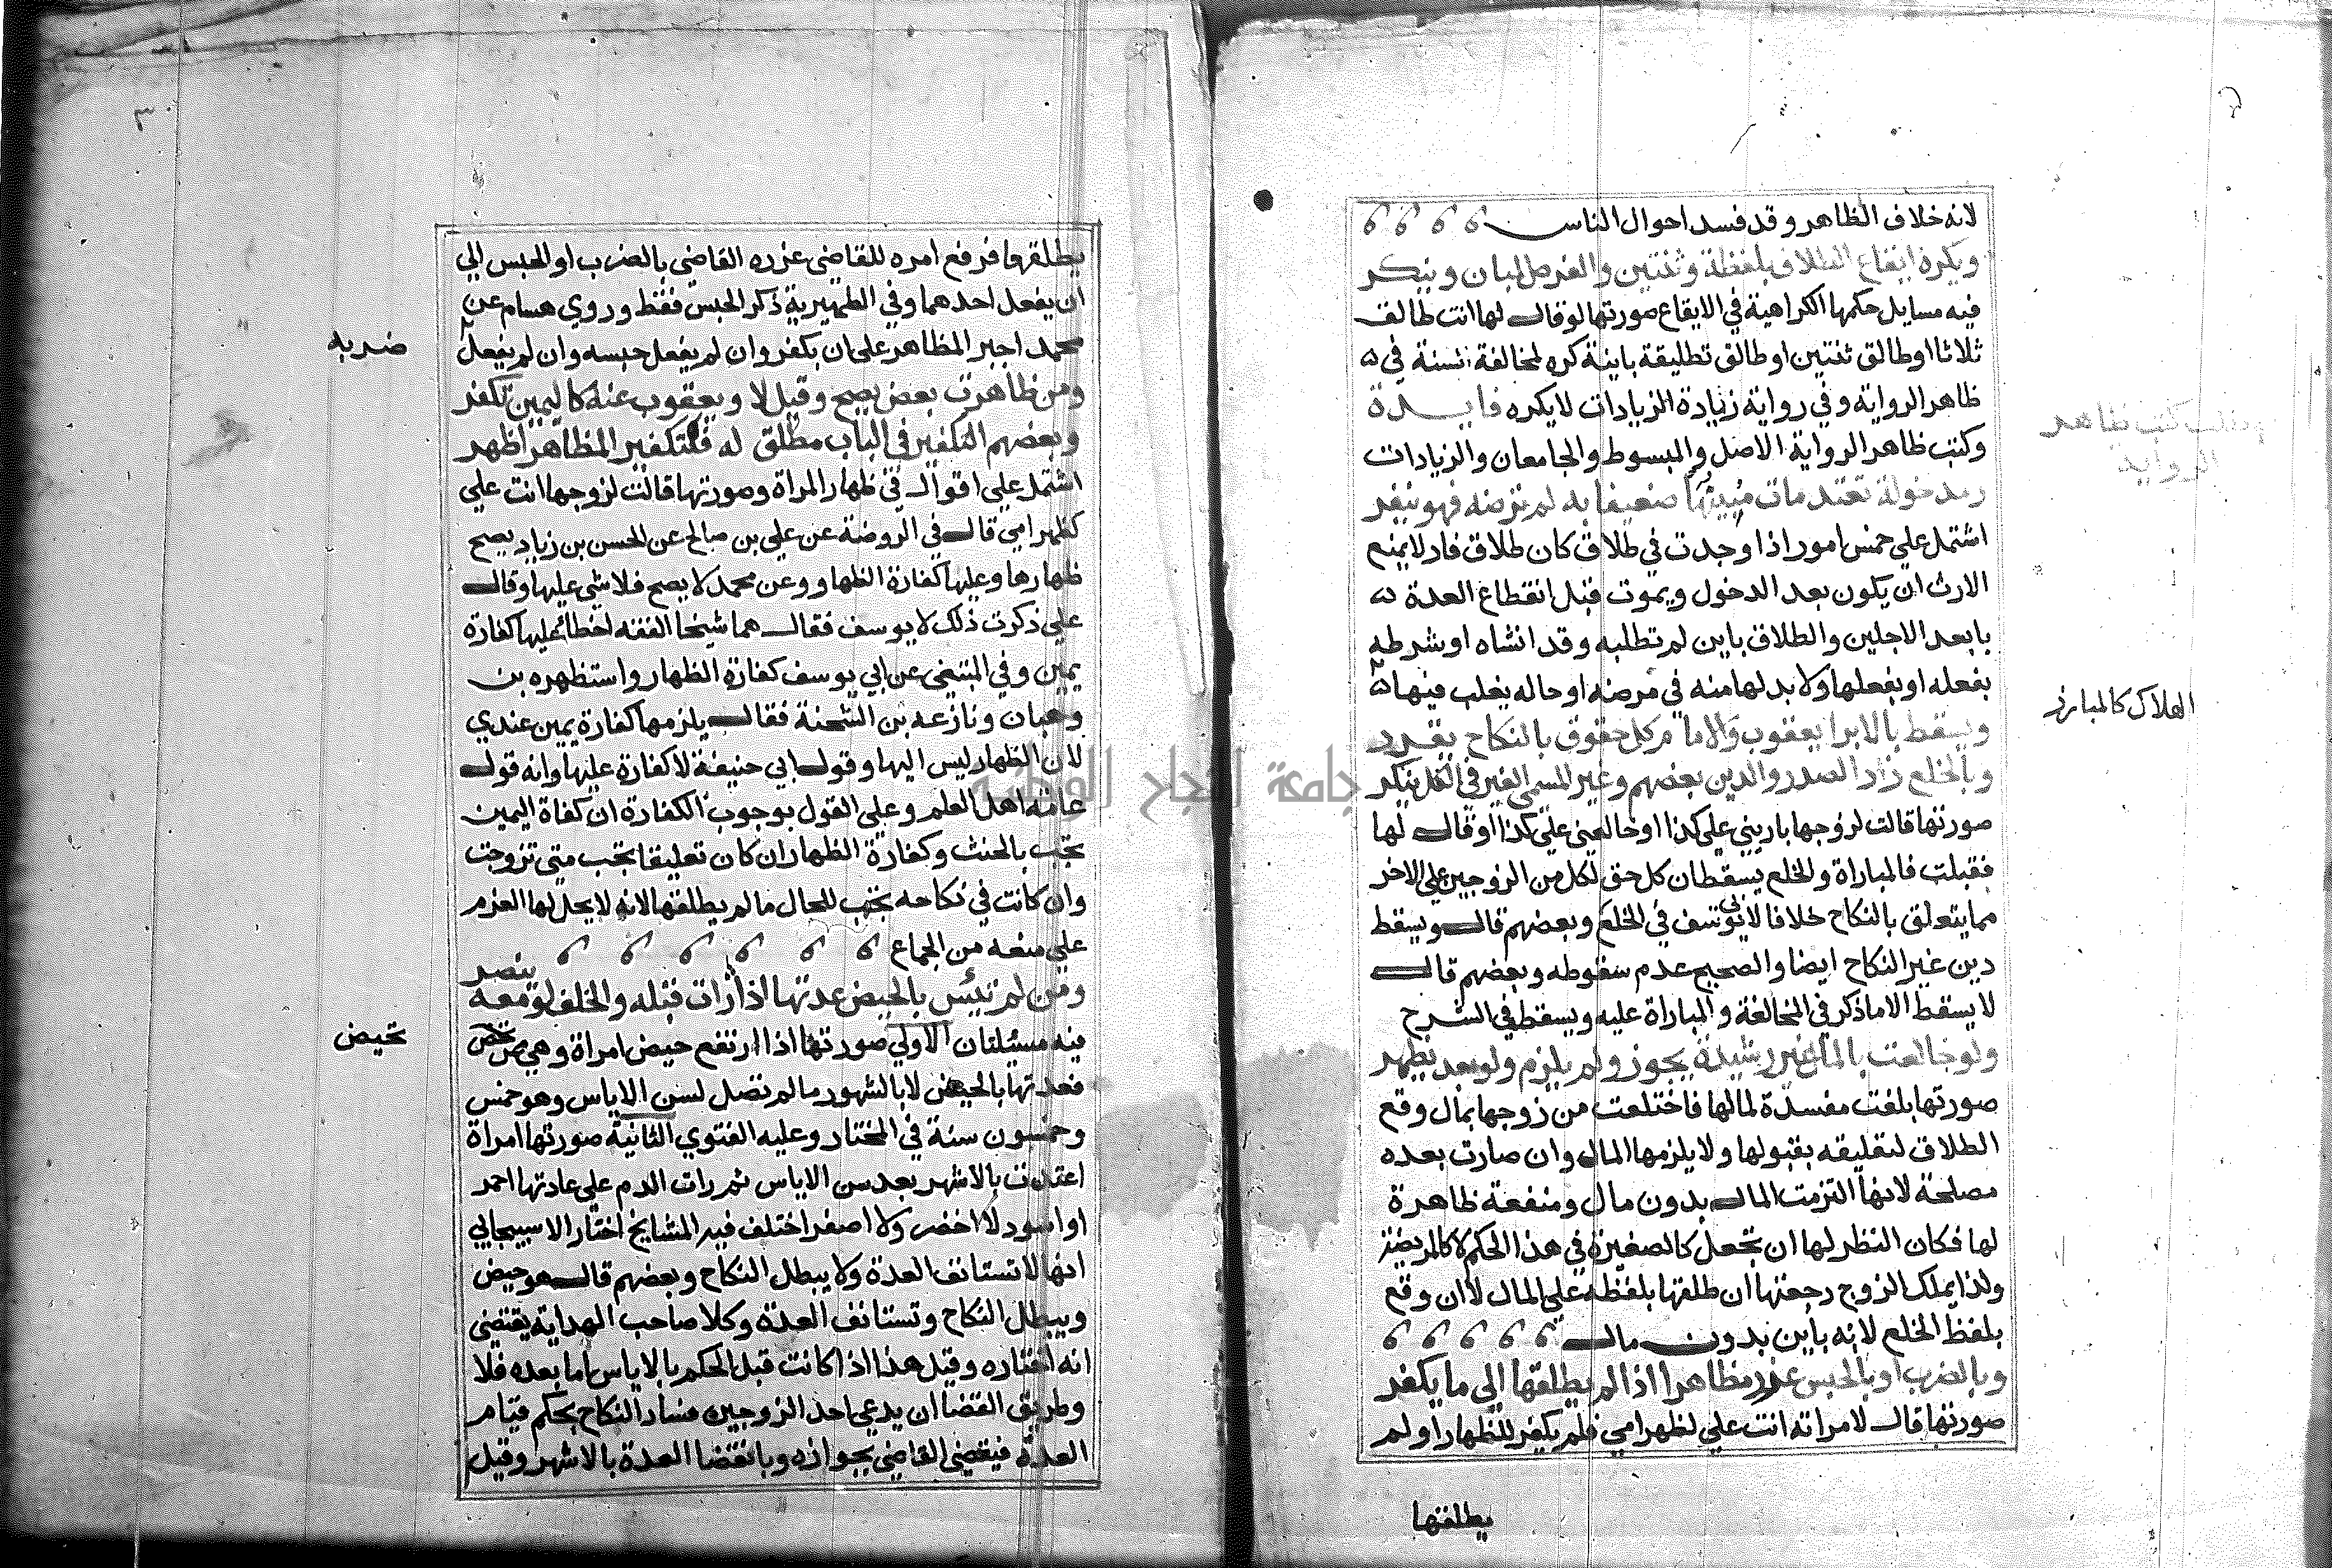 لانه خلاف الظاهر وقد فسد احوال الناس
ويكره ايقاع الطلاق بلفظة وثنتين والفرض ابان وينكر
فيه مسايل حكمها الكراهية في الايقاع صورتها لو قال لها انت طالق
ثلاثا او طالق ثنتين او طالق تطليقة باينة كره لمخالفة السنة في
ظاهر الرواية وفي رواية زيادة الزيادات لا يكره فايدة
وكتب ظاهر الرواية الاصل والمبسوط والجامعان والزيادات
مدخولة تعتد مات مبينها ضعيفا به لم ترضه فهو ينفر
اشتمل علي خمس امور اذا وجدت في طلاق كان طلاق فار لا يمنع
الارث ان يكون بعد الدخول ويموت قبل انقطاع العدة
بابعد الاجلين والطلاق باين لم تطلبه وقد انشاه او شرطه
بفعله او بفعلها ولا بد لها منه في مرضه او حاله يغلب فيها
ويسقط بالابرا يعقوب والامام كل حقوق بالنكاح يقرر
وبالخلع زاد الصدر والدين بعضهم وغير المسمى الغير في الكل ينكر
صورتها قالت لزوجها باريني علي كذا او خالعني علي كذا او قال لها
فقبلت فالمباراة والخلع يسقطان كل حق لكل من الزوجين علي الاخر
مما يتعلق بالنكاح خلافا لابي يوسف في الخلع وبعضهم قال ويسقط
دين غير النكاح ايضا والصحيح عدم سقوطه وبعضهم قال
لا يسقط الا ما ذكر في المخالعة والمباراة عليه ويسقط في الشرح
ولو خالعت بالمال غير رشيدة يجوز ولم يلزم ولو بعد يظهر
صورتها بلغت مفسدة لمالها فاختلعت من زوجها بمال وقع
الطلاق لتعليقه بقبولها ولا يلزمها المال وان صارت بعده
مصلحة لانها التزمت المال بدون مال ومنفعة ظاهرة
لها فكان النظر لها ان تجعل كالصغيرة في هذا الحكم لا كالمريضة
ولذا يملك الزوج رجعتها ان طلقها بلفظه علي المال لا ان وقع
بلفظ الخلع لانه باين بدون مال
وبالضرب او بالحبس عزر مظاهرا اذا لم يطلقها الي ما يكفر
صورتها قال لامراته انت علي لظهر امي فلم يكفر للظهار او لم
يطلقها
وكتب ظاهر
الرواية
الهلاك كالمبارز
٣
يطلقها فرفع امره للقاضي عزره القاضي بالضرب او الحبس الي
ان يفعل احدهما وفي الظهيرية ذكر الحبس فقط وروي هسام عن
محمد اجبر المظاهر علي ان يكفر وان لم يفعل حبسه وان لم يفعل
ومن ظاهرت بعض يصح وقيل لا ويعقوب عنه كاليمين تكفر
وبعضهم التكفير في الباب مطلق له فلتكفير المظاهر اظهر
اشتمل علي اقوال في ظهار المراة وصورتها قالت لزوجها انت علي
كظهر امي قال في الروضة عن علي بن صالح عن الحسن بن زياد يصح
ظهارها وعليها كفارة الظهار وعن محمد لا يصح فلا شي عليها وقال
علي ذكرت ذلك لابويوسف فقال هما شيخا الفقه اخطا عليها كفارة
يمين وفي المبتغى عن ابي يوسف كفارة الظهار واستظهره بن
وهبان ونازعه بن الشحنة فقال يلزمها كفارة يمين عندي
لان الظهار ليس اليها وقول ابي حنيفة لا كفارة عليها وانه قول
عامة اهل العلم وعلي القول بوجوب الكفارة ان كفاة اليمين
تجب بالحنث وكفارة الظهار ان كان تعليقا تجب متي تزوجت
وان كانت في نكاحه تجب للحال ما لم يطلقها لانه لا يحل لها العزم
علي منعه من الجماع
ومن لم تيئس بالحيض عدتها اذا رات قبله والخلف لو معه ينصر
فيه مسئلتان الاولي صورتها اذا ارتفع حيض امراة وهي ممن تحض
فعدتها بالحيض لا بالشهور ما لم تصل لسن الاياس وهو خمس
وخمسون سنة في المختار وعليه الفتوي الثانية صورتها امراة
اعتدت بالاشهر بعد سن الاياس ثم رات الدم علي عادتها احمر
او اسود لا اخضر ولا اصفر اختلف فيه المشايخ اختار الاسبيجابي
انها لا تستانف العدة ولا يبطل النكاح وبعضهم قال هو حيض
ويبطل النكاح وتستانف العدة وكلا صاحب الهداية يقتضي
انه اختاره وقيل هذا اذا كانت قبل الحكم بالاياس اما بعده فلا
وطريق القضا ان يدعي احد الزوجين فساد النكاح بحكم قيام
العدة فيقضي القاضي بجوازه وبانقضا العدة بالاشهر وقيل
ضربه
تحيض
جامعة النجاح الوطنية